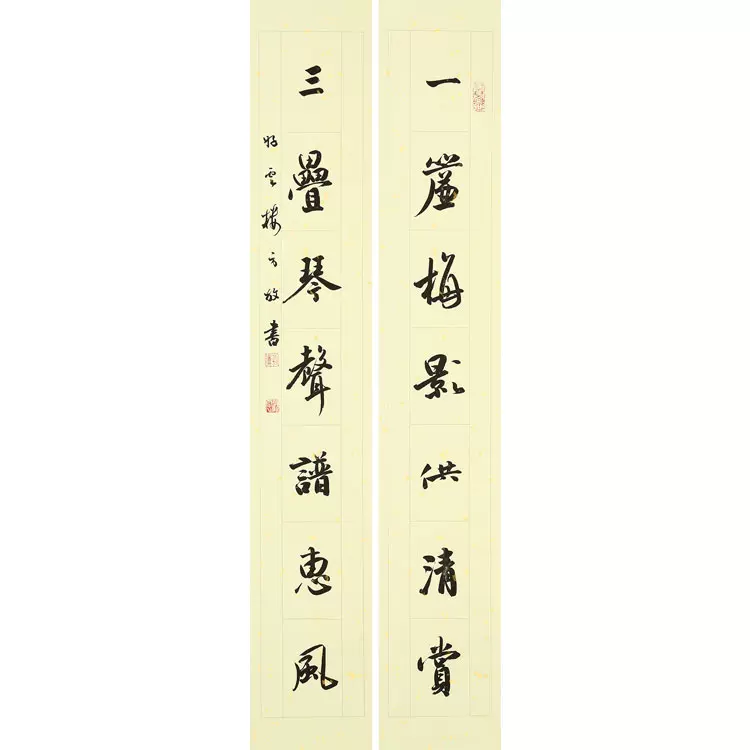 一簾梅影供清賞
三疊琴聲譜惠風
好雲樓方放書